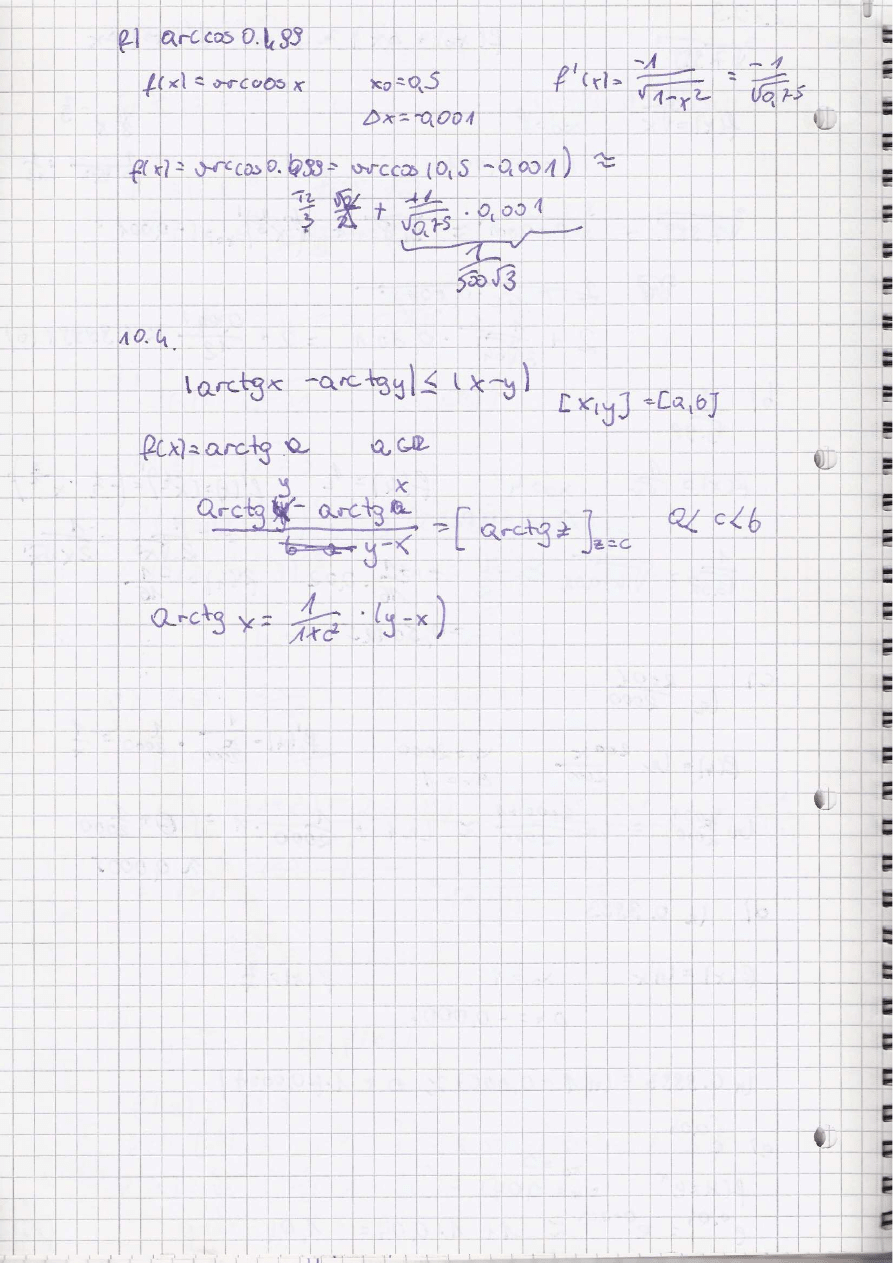 f) arccos 0.499
f(x) = arccos x   x0=0,5   f'(x)= -1/√(1-x²) = -1/√0,75
Δx = -0,001
f(x) = arccos 0.499 = arccos (0,5 - 0,001) ≈
π/3 + +1/√0,75 · 0,001
1/(500√3)
10.4.
|arctgx - arctgy| ≤ |x-y|   [x,y] = [a,b]
f(x) = arctg a   a∈R
(arctg y - arctg x)/(y-x) = [arctg z]z=c   a< c<b
arctg x = 1/(1+c²) · (y-x)